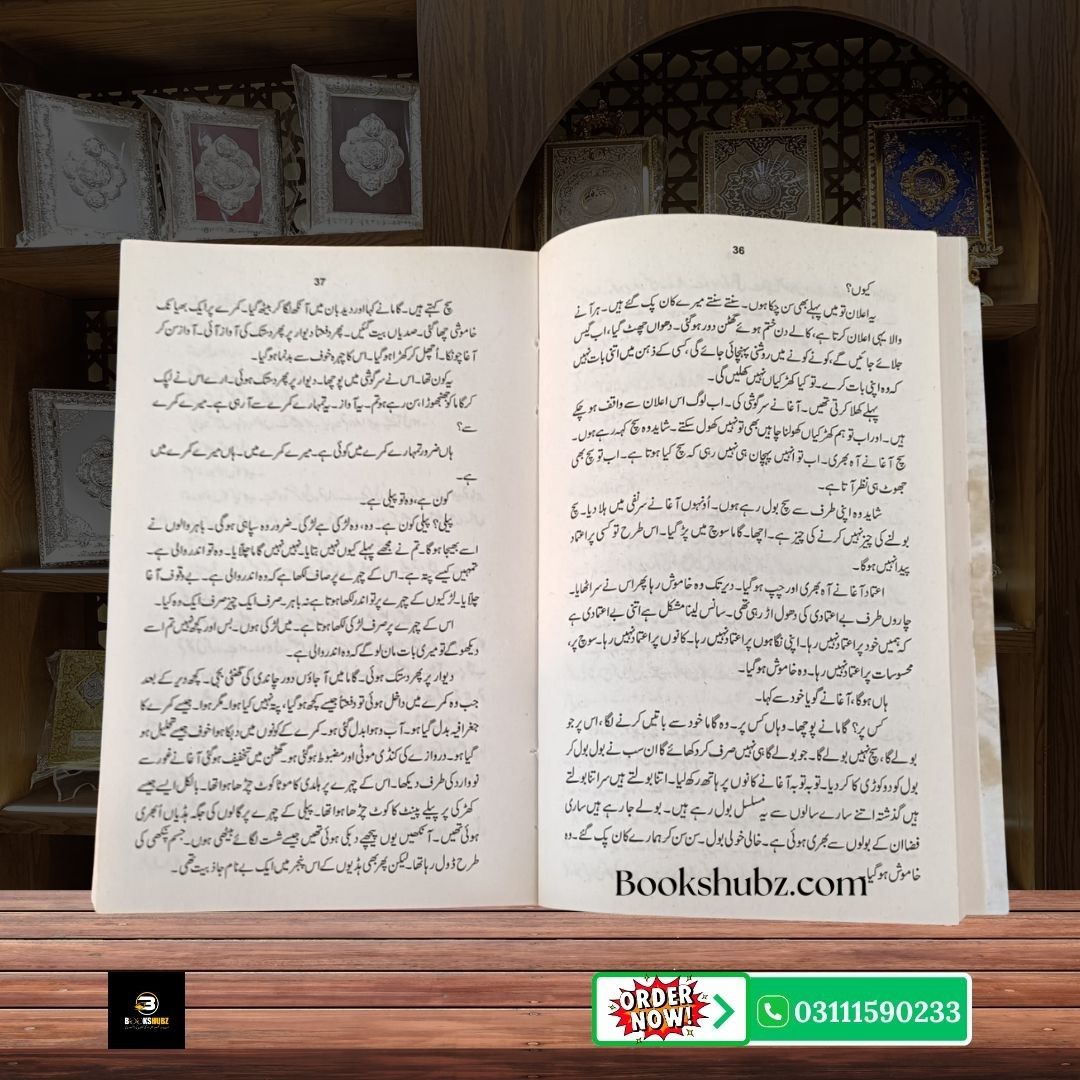 36
کیوں؟
یہ اعلان تو میں پہلے بھی سن چکا ہوں۔ سنتے سنتے میرے کان پک گئے ہیں۔ ہر آنے
والا یہی اعلان کرتا ہے، کالے دن ختم ہوئے گھٹن دور ہو گئی۔ دھواں چھٹ گیا، اب گیس
جلائے جائیں گے، کونے کونے میں روشنی پہنچائی جائے گی، کسی کے ذہن میں اتنی بات نہیں
کہ وہ اپنی بات کرے۔ تو کیا کھڑکیاں نہیں کھلیں گی۔
پہلے کھلا کرتی تھیں۔ آغا نے سرگوشی کی۔ اب لوگ اس اعلان سے واقف ہو چکے
ہیں۔ اور اب تو ہم کھڑکیاں کھولنا چاہیں بھی تو نہیں کھول سکتے۔ شاید وہ سچ کہہ رہے ہوں۔
سچ آغا نے آہ بھری۔ اب تو انہیں پہچان ہی نہیں رہی کہ سچ کیا ہوتا ہے۔ اب تو سچ بھی
جھوٹ ہی نظر آتا ہے۔
شاید وہ اپنی طرف سے سچ بول رہے ہوں۔ اُونہوں آغا نے سر نفی میں ہلا دیا۔ سچ
بولنے کی چیز نہیں کرنے کی چیز ہے۔ اچھا۔ گاما سوچ میں پڑ گیا۔ اس طرح تو کسی پر اعتماد
پیدا نہیں ہوگا۔
اعتماد آغا نے آہ بھری اور چپ ہو گیا۔ دیر تک وہ خاموش رہا پھر اس نے سر اٹھایا۔
چاروں طرف بے اعتمادی کی دھول اڑ رہی تھی۔ سانس لینا مشکل ہے اتنی بے اعتمادی ہے
کہ ہمیں خود پر اعتماد نہیں رہا۔ اپنی نگاہوں پر اعتماد نہیں رہا۔ کانوں پر اعتماد نہیں رہا۔ سوچ پر،
محسوسات پر اعتماد نہیں رہا۔ وہ خاموش ہو گیا۔
ہاں ہوگا، آغا نے گویا خود سے کہا۔
کس پر؟ گاما نے پوچھا۔ وہاں کس پر۔ وہ گاما خود سے باتیں کرنے لگا، اس پر جو
بولے گا، سچ نہیں بولے گا۔ جو بولے گا ہی نہیں صرف کر دکھائے گا ان سب نے بول بول کر
بول کو دو کوڑی کا کر دیا۔ توبہ توبہ آغا نے کانوں پر ہاتھ رکھ لیا۔ اتنا بولتے ہیں سر اتنا بولتے
ہیں گذشتہ اتنے سارے سالوں سے یہ مسلسل بول رہے ہیں۔ بولے جا رہے ہیں ساری
فضا ان کے بولوں سے بھری ہوئی ہے۔ خالی خولی بول۔ سن سن کر ہمارے کان پک گئے۔ وہ
خاموش ہو گیا
37
سچ کہتے ہیں۔ گاما نے کہا اور دیدبان میں آنکھ لگا کر بیٹھ گیا۔ کمرے پر ایک بھیانک
خاموشی چھا گئی۔ صدیاں بیت گئیں۔ پھر دفعتاً دیوار پر پھر دستک کی آواز آئی۔ آواز سن کر
آغا چونکا۔ اُچھل کر کھڑا ہو گیا۔ اس کا چہرہ خوف سے بدنما ہو گیا۔
یہ کون تھا۔ اس نے سرگوشی میں پوچھا۔ دیوار پر پھر دستک ہوئی۔ ارے اس نے لپک
کر گاما کو جھنجھوڑا، سن رہے ہو تم۔ یہ آواز۔ یہ تمہارے کمرے سے آرہی ہے۔ میرے کمرے
سے؟
ہاں ضرور تمہارے کمرے میں کوئی ہے۔ میرے کمرے میں۔ ہاں میرے کمرے میں
ہے۔
کون ہے، وہ تو پیلی ہے۔
پیلی؟ پیلی کون ہے۔ وہ، وہ لڑکی ہے لڑکی۔ ضرور وہ سپاہی ہوگی۔ باہر والوں نے
اسے بھیجا ہوگا۔ تم نے مجھے پہلے کیوں نہیں بتایا۔ نہیں نہیں گاما چلایا۔ وہ تو اندر والی ہے۔
تمہیں کیسے پتہ ہے۔ اس کے چہرے پر صاف لکھا ہے کہ وہ اندر والی ہے۔ بے وقوف آغا
چلایا۔ لڑکیوں کے چہرے پر تو اندر لکھا ہوتا ہے نہ باہر۔ صرف ایک چیز صرف ایک وہ کیا۔
اس کے چہرے پر صرف لڑکی لکھا ہوتا ہے۔ میں لڑکی ہوں۔ بس اور کچھ نہیں تم اسے
دیکھو گے تو میری بات مان لو گے کہ وہ اندر والی ہے۔
دیوار پر پھر دستک ہوئی۔ گاما میں آ جاؤں دور چاندی کی گھنٹی بجی۔ کچھ دیر کے بعد
جب وہ کمرے میں داخل ہوئی تو دفعتاً جیسے کچھ ہو گیا، پتہ نہیں کیا ہوا۔ مگر ہوا۔ جیسے کمرے کا
جغرافیہ بدل گیا ہو۔ آب و ہوا بدل گئی ہو۔ کمرے کے کونوں میں دبکا ہوا خوف جیسے تحلیل ہو
گیا ہو۔ دروازے کی کنڈی موٹی اور مضبوط ہو گئی ہو۔ گھٹن میں تخفیف ہو گئی آغا نے غور سے
نووارد کی طرف دیکھا۔ اس کے چہرے پر ہلدی کا موٹا کوٹ چڑھا ہوا تھا۔ بالکل ایسے جیسے
کھڑکی پر پیلے پینٹ کا کوٹ چڑھا ہوا تھا۔ پیلی کے چہرے پر گالوں کی جگہ ہڈیاں اُبھری
ہوئی تھیں۔ آنکھیں یوں پیچھے دبکی ہوئی تھیں جیسے شست لگائے بیٹھی ہوں۔ جسم پنکھی کی
طرح ڈول رہا تھا۔ لیکن پھر بھی ہڈیوں کے اس پنجر میں ایک بے نام جاذبیت تھی۔
Bookshubz.com
BOOKSHUBZ
ORDER
NOW!
03111590233